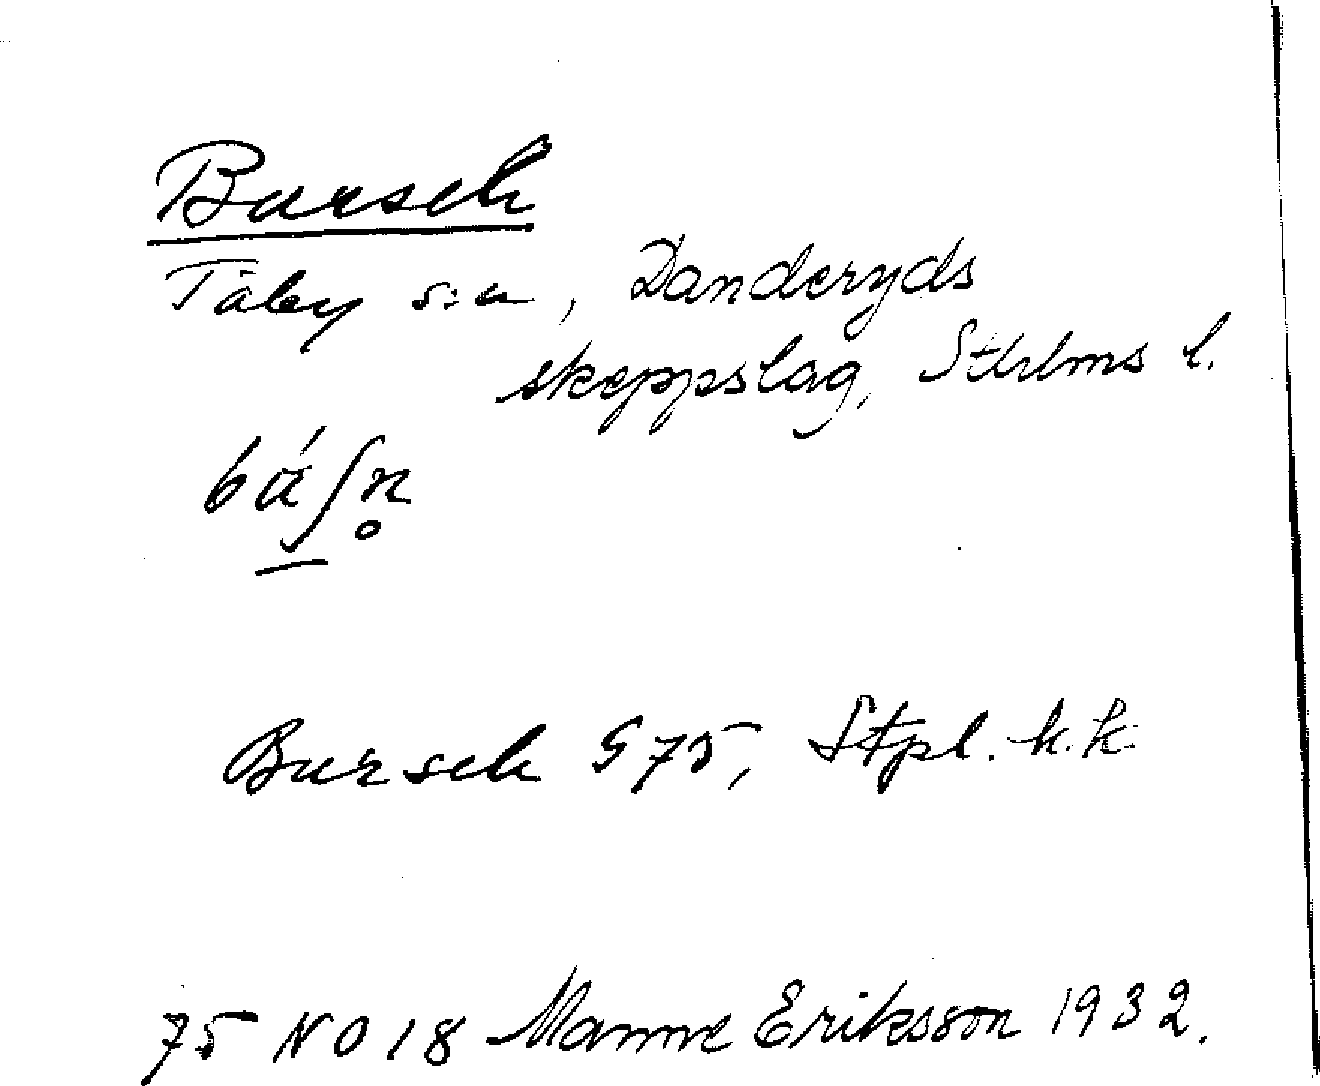 Bursch
Täby s:n, Danderyds
skeppslag, Sthlms l.
Bursch G 75, Stpl. k.k
75 NO 18 Manne Eriksson 1932.